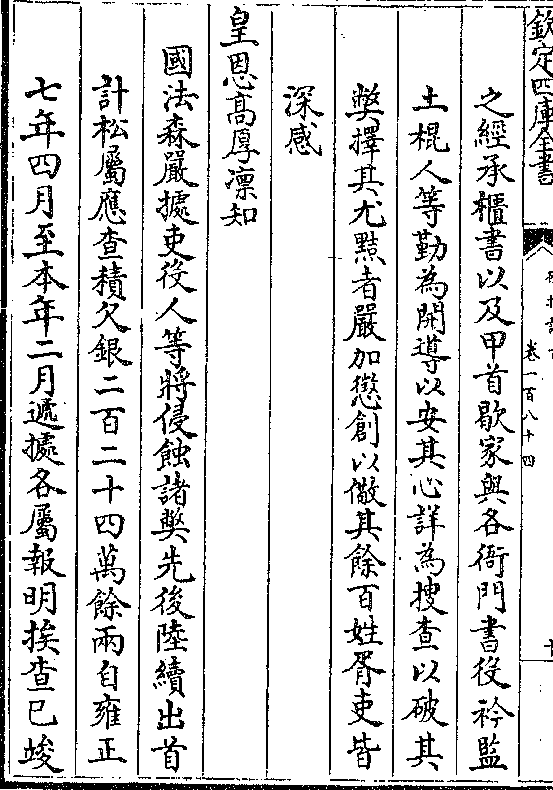 欽定四庫全書
卷一百八十四
之經承櫃書以及甲首歇家與各衙門書役衿監
土棍人等勤為開導以安其心詳為搜查以破其
獘擇其尤黠者嚴加懲創以儆其餘百姓胥吏皆
深感
皇恩高厚凛知
國法森嚴據吏役人等將侵蝕諸獘先後陸續出首
計松屬應查積欠銀二百二十四萬餘兩自雍正
七年四月至本年二月遞據各屬報明挨查已竣